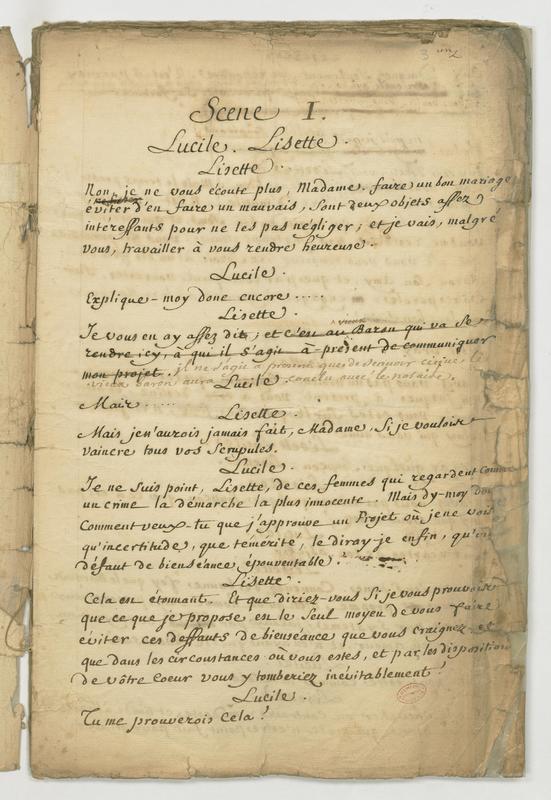 3
Scene I.
Lucile. Lisette.
Lisette.
Non, je ne vous écoute plus, Madame. faire un bon mariage
éviter d'en faire un mauvais, Sont deux objets assez
intéressants pour ne les pas négliger; et je vais, malgré
vous, travailler à vous rendre heureuse.
Lucile.
Explique-moy donc encore.....
Lisette.
vieux
Je vous en ay assez dit; et c'est au Baron qui va se
rendre icy, à qui il s'agit à-présent de communiquer
mon projet. il ne s'agit à présent que de sçavoir ce que le
vieux Baron aura conclu avec le notaire.
Lucile.
Mais......
Lisette.
Mais je n'aurois jamais fait, Madame, Si je voulois
vaincre tous vos Scrupules.
Lucile.
Je ne suis point, Lisette, de ces femmes qui regardent comme
un crime la démarche la plus innocente. Mais dy-moy
Comment veux-tu que j'approuve un Projet où je ne vois
qu'incertitude, que témérité, le diray-je enfin, qu'un
défaut de bienséance épouventable?
Lisette.
Cela est étonnant. Et que diriez-vous Si je vous prouvois
que ce que je propose est le Seul moyen de vous faire
éviter ces deffauts de bienséance que vous craignez et
que dans les circonstances où vous estes, et par les disposition
de vôtre Coeur vous y tomberiez inévitablement?
Lucile.
Tu me prouverois Cela?